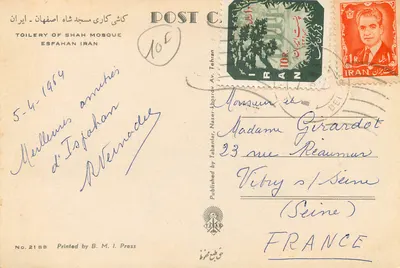 کاشی کاری مسجد شاه اصفهان - ایران
TOILERY OF SHAH MOSQUE
ESFAHAN IRAN
POST
10€
5-4-1964
Meilleures amitiés
d'Ispahan
Published by Tabanfar, Naser-Khosrow Av. Tehran
10R
IRAN
1R
IRAN
Monsieur et
Madame Girardot
23 rue Réaumur
Vitry s/Seine
(Seine)
FRANCE
No. 2188
Printed by B. M. I. Press